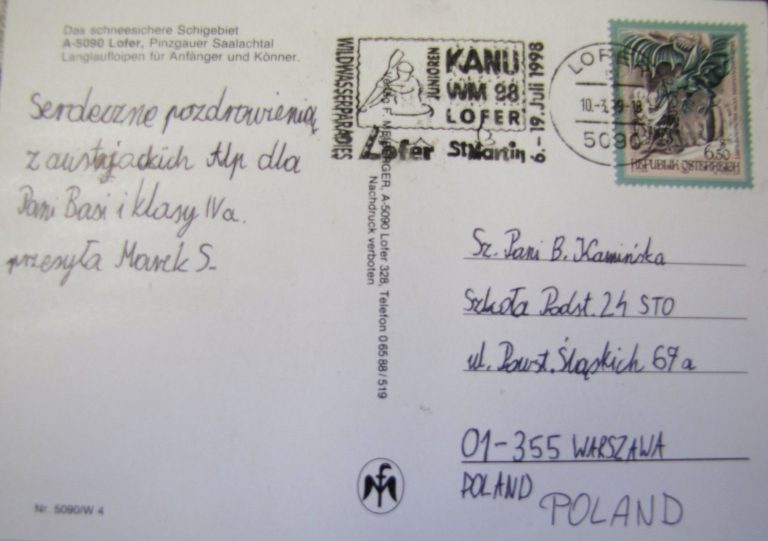 Das schneesichere Schigebiet
A-5090 Lofer, Pinzgauer Saalachtal
Langlaufloipen für Anfänger und Könner.
Serdeczne pozdrowienia
z austrjackich Alp dla
Pani Basi i klasy IVa.
przesyła Marek S.
WILDWASSERPARADIES
JUNIOREN
KANU
WM 98
LOFER
Lofer St Martin
6.-19. Juli 1998
LOFER
5090
6.50
REPUBLIK ÖSTERREICH
A-5090 Lofer 328, Telefon 0 65 88 / 519
Nachdruck verboten
Sz. Pani B. Kamińska
Szkoła Podst. 24 STO
ul. Powst. Śląskich 67a
01-355 WARSZAWA
POLAND
POLAND
Nr. 5090/W 4